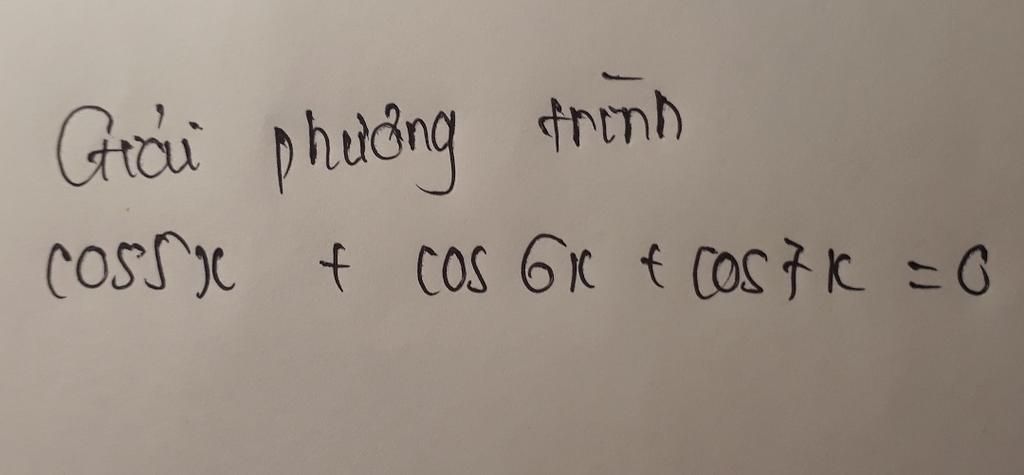 Giải phương trình
cos5x + cos 6x + cos7x = 0